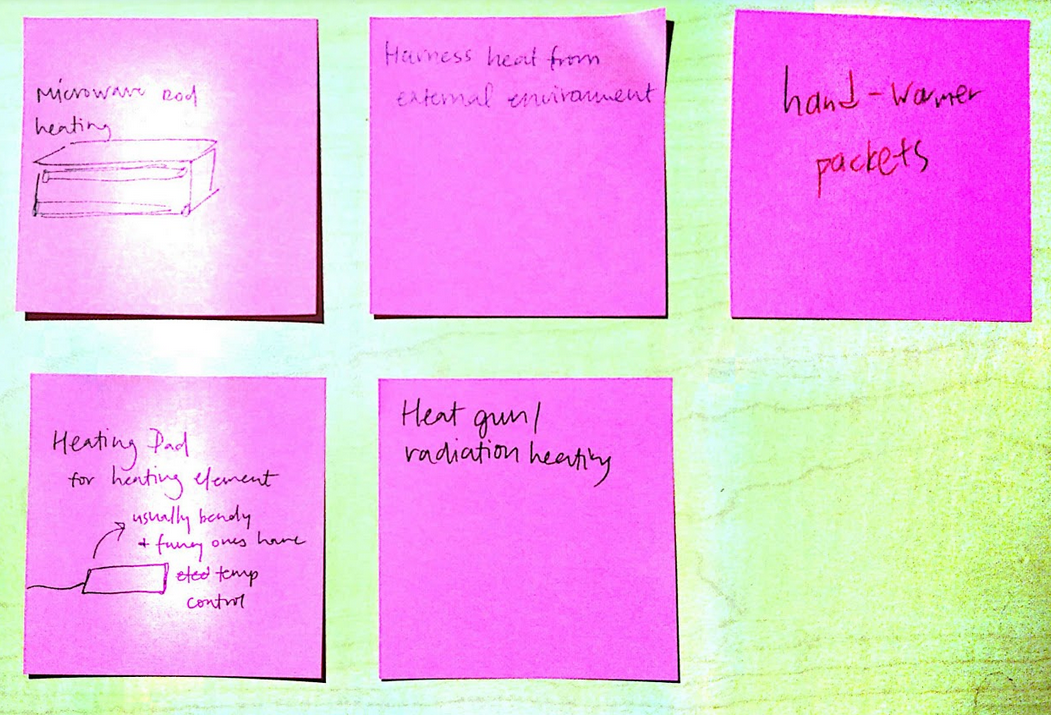 Microwave Rod
heating
Harness heat from
external enviroment
hand-warmer
packets
Heating Pad
for heating element
usually bendy
+ fancy ones have
temp
control
Heat gun/
radiation heating